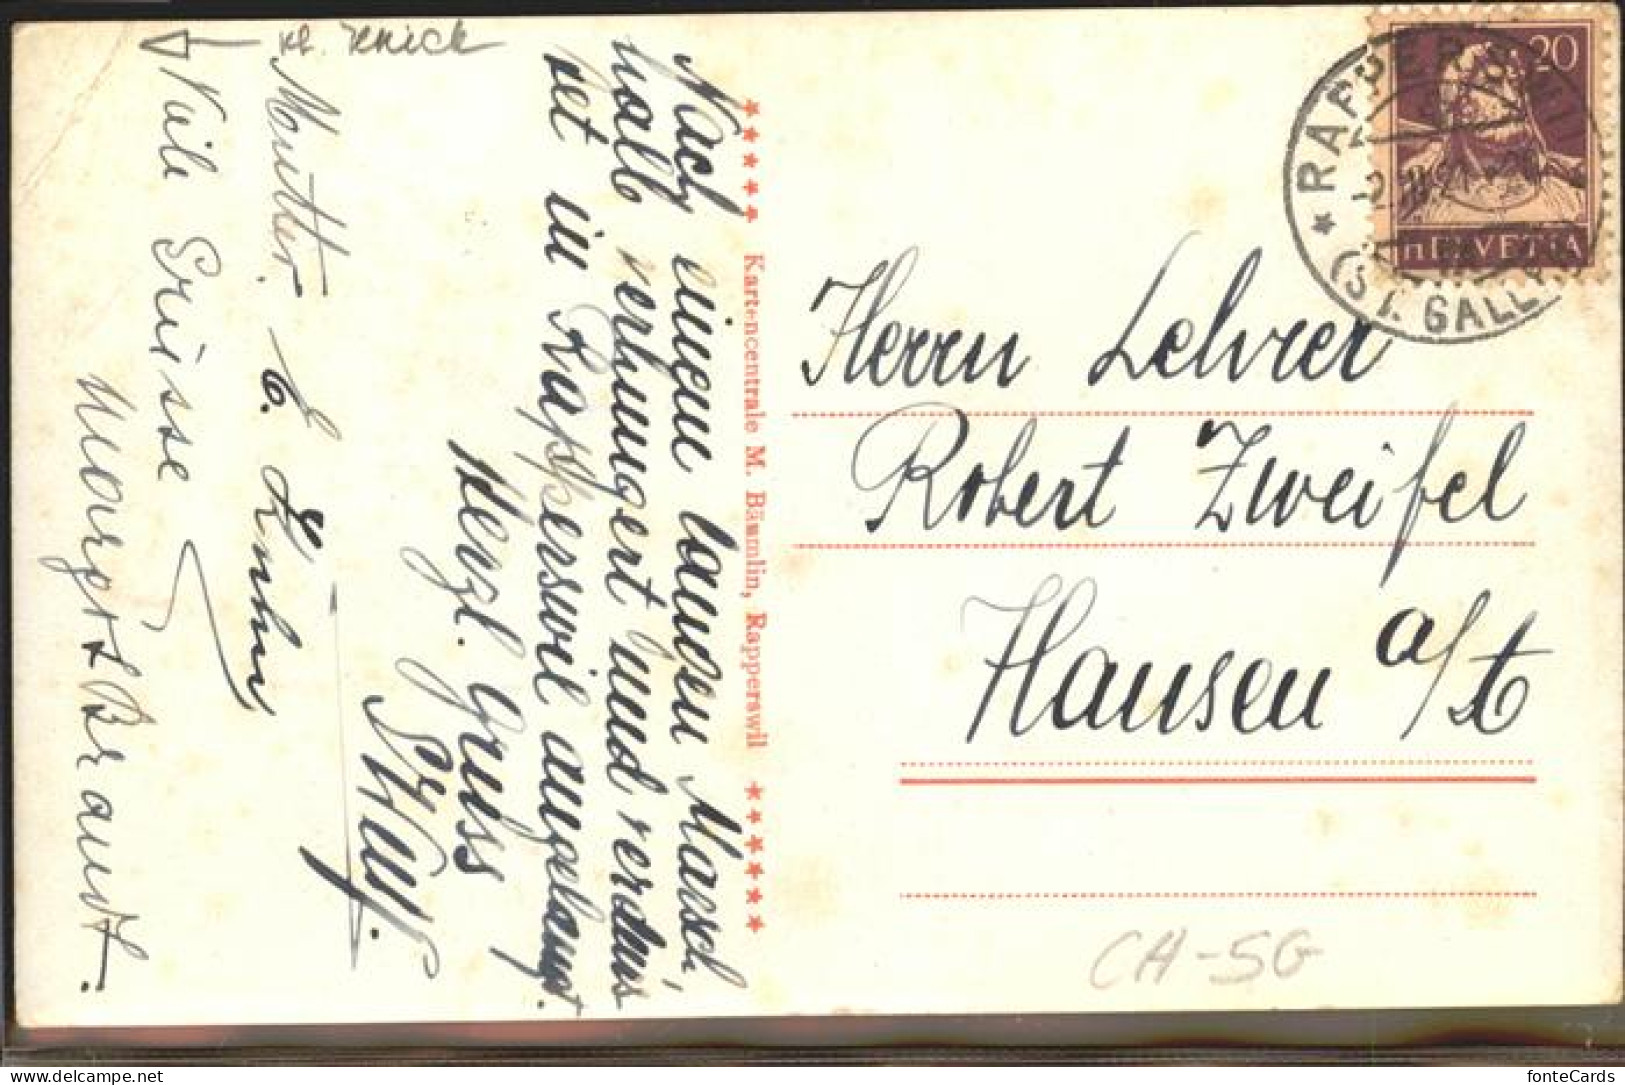 kl. Knick
Nach einem langen Marsch,
halb verhungert und verdurs
tet in Rapperswil angelangt.
Herzl. Gruss
Mutter.
Viele Grüsse
Margrit Brandt.
Kartencentrale M. Bäumlin, Rapperswil
20
HELVETIA
RAPPERSWIL
(ST. GALLEN)
Herrn Lehrer
Robert Zweifel
Hausen a/A
CH-SG
fonteCards